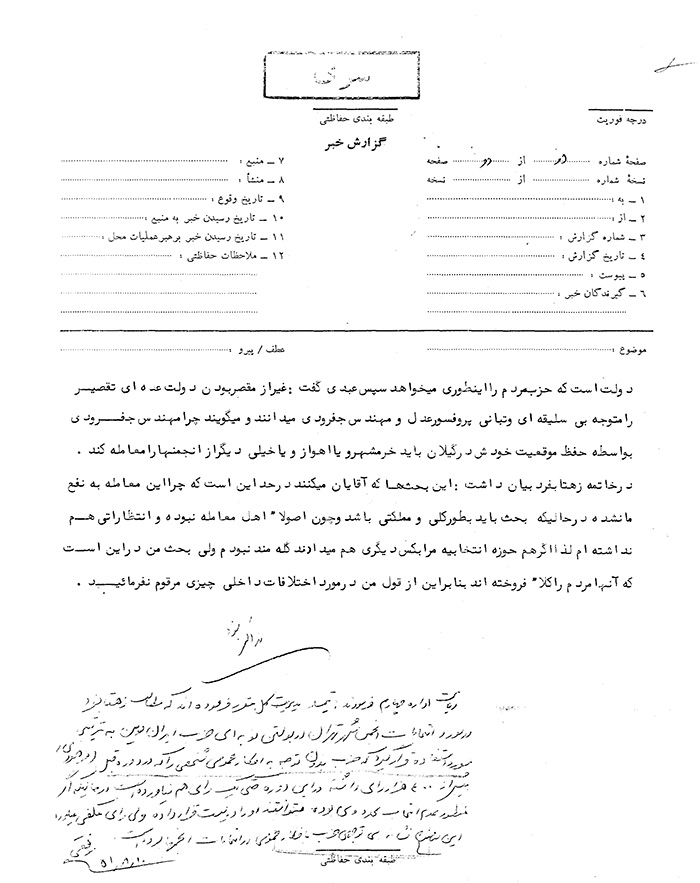 طبقه بندی حفاظتی
درجه فوریت
گزارش خبر
صفحهٔ شماره دو از دو صفحه
نسخهٔ شماره از نسخه
۱ ـ به :
۲ ـ از :
۳ ـ شماره گزارش :
۴ ـ تاریخ گزارش :
۵ ـ پیوست :
۶ ـ گیرندگان خبر :
۷ ـ منبع :
۸ ـ منشأ :
۹ ـ تاریخ وقوع :
۱۰ ـ تاریخ رسیدن خبر به منبع :
۱۱ ـ تاریخ رسیدن خبر برهبر عملیات محل :
۱۲ ـ ملاحظات حفاظتی :
موضوع :
عطف / پیرو :
دولت است که حزب مردم را اینطوری میخواهد سپس عبدی گفت : غیر از مقصر بودن دولت عده ای تقصیر
را متوجه بی سلیقه ای وتبانی پروفسور عدل و مهندس جفرودی میدانند و میگویند چرا مهندس جفرودی
بواسطه حفظ موقعیت خودش در گیلان باید خرمشهر و یا اهواز و یا خیلی دیگر از انجمنها را معامله کند .
در خاتمه زهتابفرد بیان داشت : این بحث ها که آقایان میکنند در حد این است که چرا این معامله به نفع
ما نشده در حالیکه بحث باید بطور کلی و مملکتی باشد و چون اصولا" اهل معامله نبوده و انتظاراتی هـم
نداشته ام لذا اگر هم حوزه انتخابیه مرا بکس دیگری هم میدادند گله مند نبودم ولی بحث من در این است
که آنها مردم را کلا" فروخته اند بنابراین از قول من در مورد اختلافات داخلی چیزی مرقوم نفرمائیـد .
ریاست اداره چهارم فرمودند : تیمسار مدیریت کل مقرر فرموده اند که مطالب زهتابفرد
در مورد انتخابات انجمن شهر تهران
مورد استفاده قرار گیرد که حزب بدون توجه به افکار عمومی شخصی را که در دوره قبل
بیش از ۴۰۰ هزار رای داشته در این دوره حتی یک رای هم نیاورده است در حالیکه اگر
۵۱/۸/۱۰
طبقه بندی حفاظتی